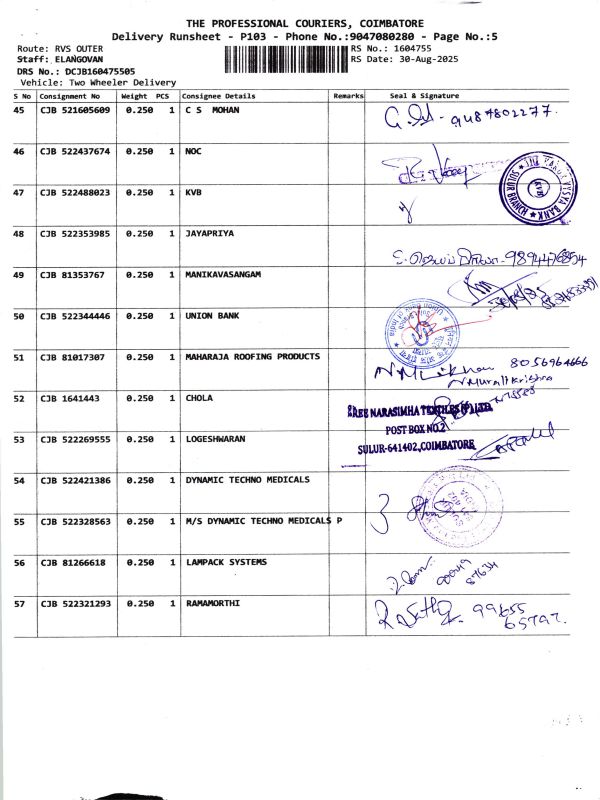 THE PROFESSIONAL COURIERS, COIMBATORE
Delivery Runsheet - P103 - Phone No.:9047080280 - Page No.:5
Route: RVS OUTER RS No.: 1604755
Staff: ELANGOVAN RS Date: 30-Aug-2025
DRS No.: DCJB160475505
Vehicle: Two Wheeler Delivery
S No Consignment No Weight PCS Consignee Details Remarks Seal & Signature
45 CJB 521605609 0.250 1 C S MOHAN 9487802277.
46 CJB 522437674 0.250 1 NOC
47 CJB 522488023 0.250 1 KVB
SULUR BRANCH KVB VYSYA BANK
48 CJB 522353985 0.250 1 JAYAPRIYA
49 CJB 81353767 0.250 1 MANIKAVASANGAM
50 CJB 522344446 0.250 1 UNION BANK
Union Bank of India
51 CJB 81017307 0.250 1 MAHARAJA ROOFING PRODUCTS 8056964666
N Murali Krishna
52 CJB 1641443 0.250 1 CHOLA
SREE NARASIMHA TEXTILES (P) LTD.
POST BOX NO.2
53 CJB 522269555 0.250 1 LOGESHWARAN SULUR-641402, COIMBATORE
54 CJB 522421386 0.250 1 DYNAMIC TECHNO MEDICALS
55 CJB 522328563 0.250 1 M/S DYNAMIC TECHNO MEDICALS P
56 CJB 81266618 0.250 1 LAMPACK SYSTEMS
87634
57 CJB 522321293 0.250 1 RAMAMORTHI 99655
65797.